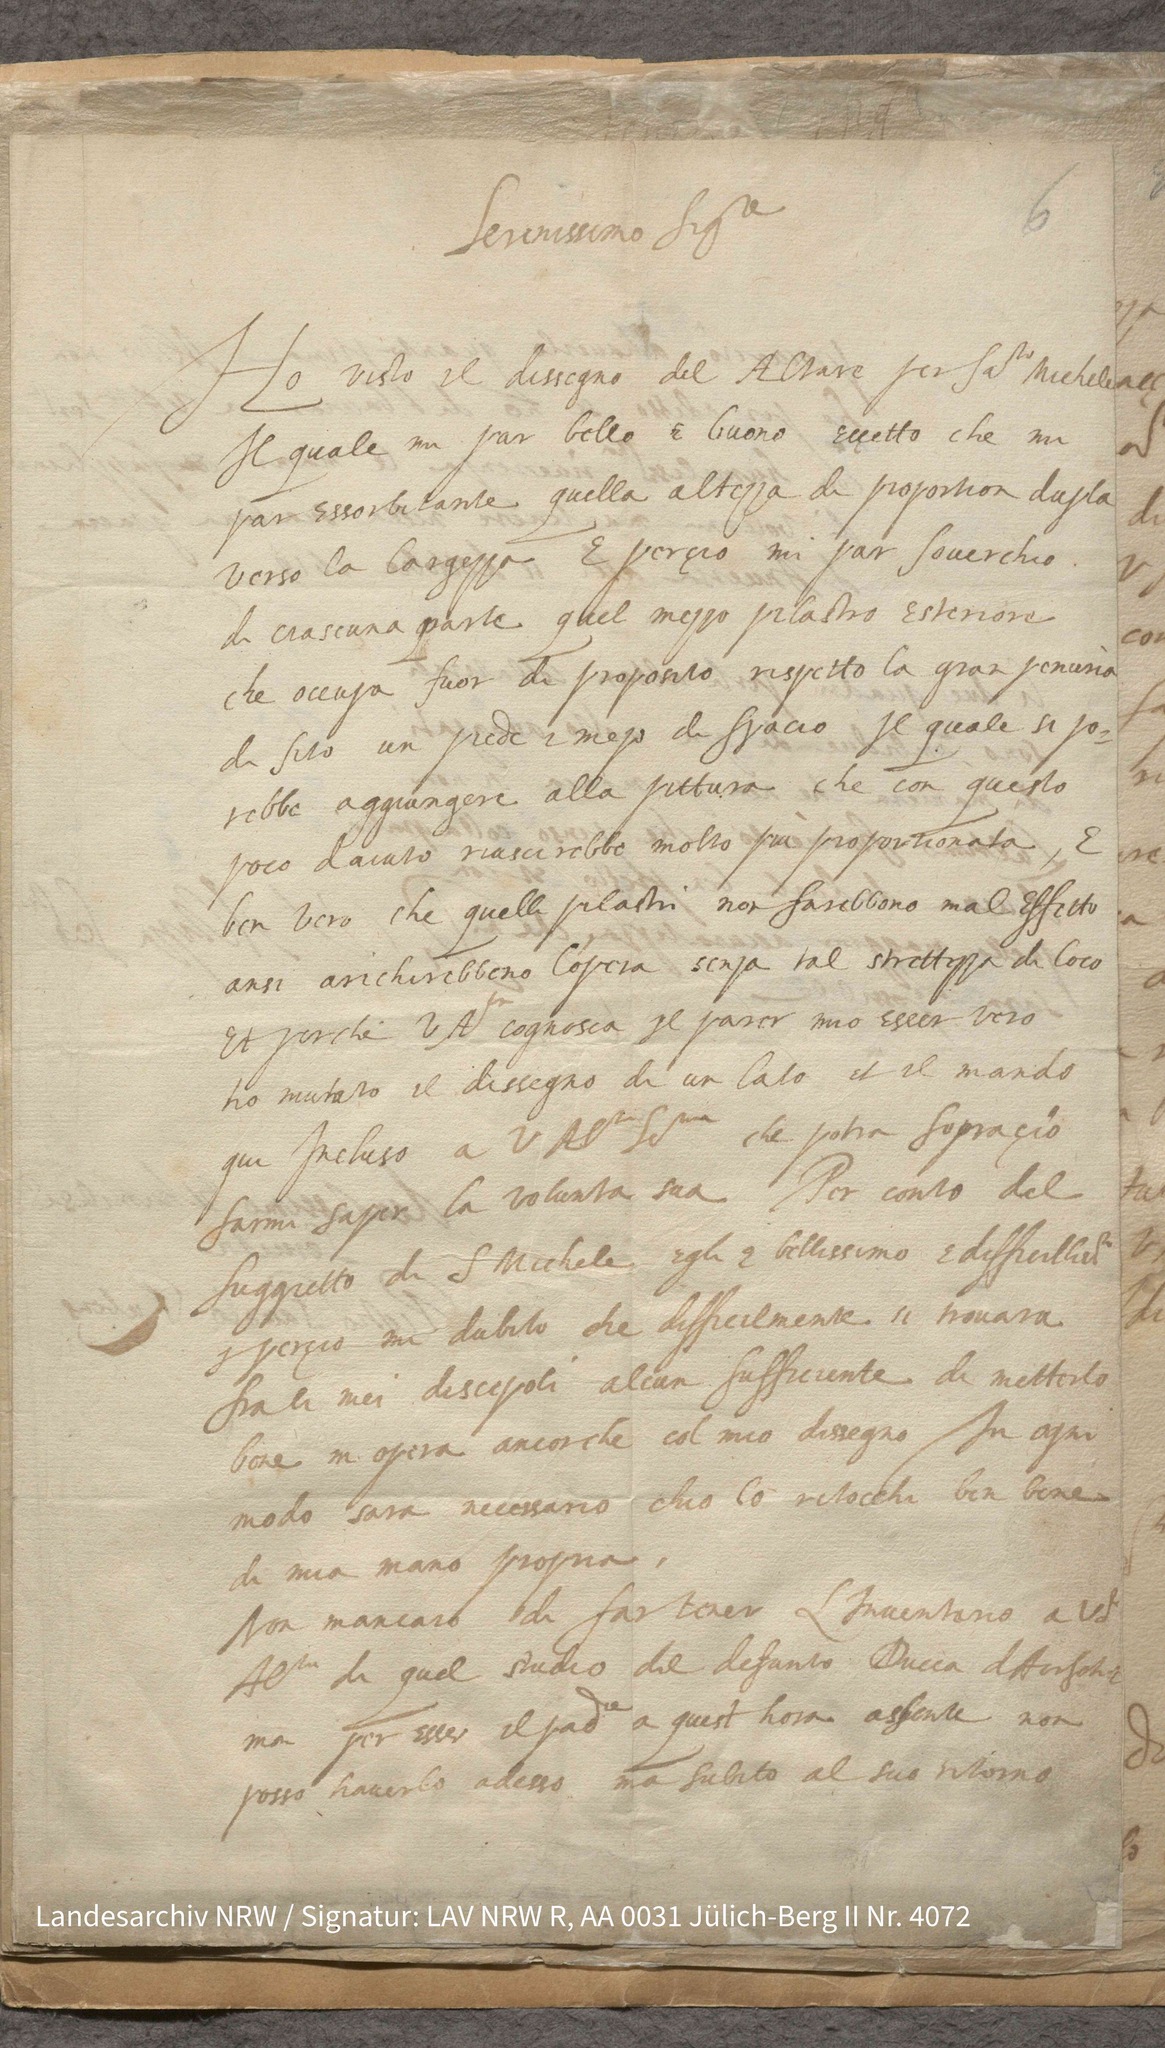 6
Serenissimo Sigre
Ho visto il dissegno del Altare per Sto Michele
Il quale mi par bello e buono eccetto che mi
par essorbitante quella altezza di proportion dupla
verso la largezza E perçio mi par soverchio
di ciascuna parte quel mezzo pilastro esteriore
che occupa fuor di proposito rispetto la gran penuria
di sito un piede e mezo di spacio Il quale si po=
rebbe aggiungere alla pittura che con questo
poco daiuto riuscirebbe molto più proportionata, E
ben vero che quelli pilastri non farebbono mal Effetto
ansi arichirebbono l'opera senza tal strettezza di loco
Et perche V Azza cognosca il parer mio esser vero
ho mutato il dissegno di un lato et il mando
qui Incluso a V Alza Serma che potra sopraçio
farmi saper la volunta sua Per conto del
suggietto di S Michele egli e bellissimo e difficillimo
e perçio mi dubito che difficilmente si trovara
fra li mei discepoli alcun sufficiente di metterlo
bene in opera ancorche col mio dissegno In ogni
modo sara necessario chio lo ritocchi ben bene
di mia mano propria.
Non mancaro di far tener L Inventario a Va
Alza di quel studio del defunto Ducca dArschot
ma per esser il padre a quest hora assente non
posso haverlo adesso ma subito al suo ritorno
Landesarchiv NRW / Signatur: LAV NRW R, AA 0031 Jülich-Berg II Nr. 4072